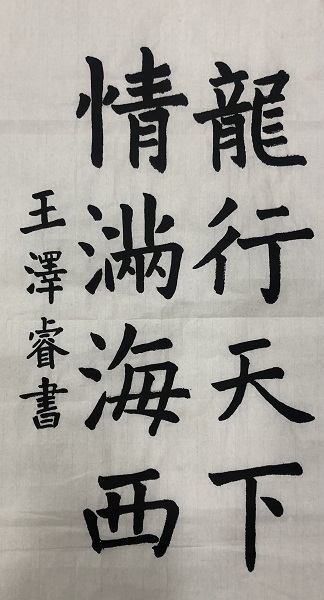 龍行天下
情滿海西
王澤睿書